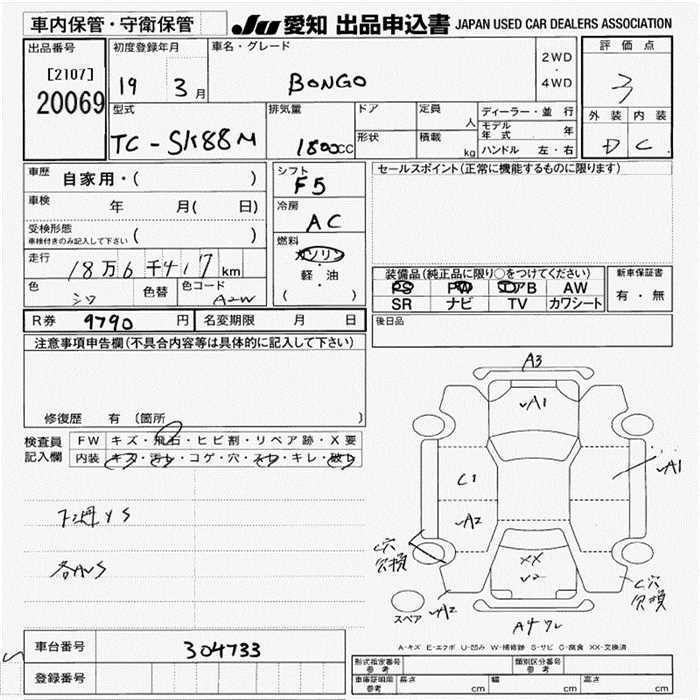 車内保管・守衛保管 JU 愛知 出品申込書 JAPAN USED CAR DEALERS ASSOCIATION
出品番号 初度登録年月 車名・グレード 2WD ・ 4WD 評価点
[2107] 19 3月 BONGO 3
20069
型式 排気量 ドア 定員 人 ディーラー・並行 外装 内装
TC-SK88M 1800cc 形状 積載 kg モデル年式 年 D C
ハンドル 左・右
車歴 自家用・( ) シフト F5 セールスポイント(正常に機能するものに限ります)
車検 年 月( 日) 冷房 AC
受検形態 車検付きのみ記入して下さい ( )
燃料 ガソリン ・ 軽・油 ( )
走行 18万6千417km
装備品(純正品に限り○をつけてください) 新車保証書
PS PW エアB AW 有・無
SR ナビ TV カワシート
色 シロ 色替 色コード A2W
R券 9790円 名変期限 月 日 後日品
注意事項申告欄(不具合内容等は具体的に記入して下さい)
修復歴 有 (箇所 )
検査員記入欄 FW キズ・飛石・ヒビ割・リペア跡・X要
内装 キズ・汚レ・コゲ・穴・スレ・キレ・破レ
A3
A1
A1
C1
A2
C穴 欠損
XX
C穴 欠損
A2
スペア
A-キズ E-エクボ U-凹み W-補修跡 S-サビ C-腐食 XX-交換済
車台番号 304733
登録番号
形式指定番号 参考 類別区分番号 参考
車庫証明用 参考 長さ cm 幅 cm 高さ cm